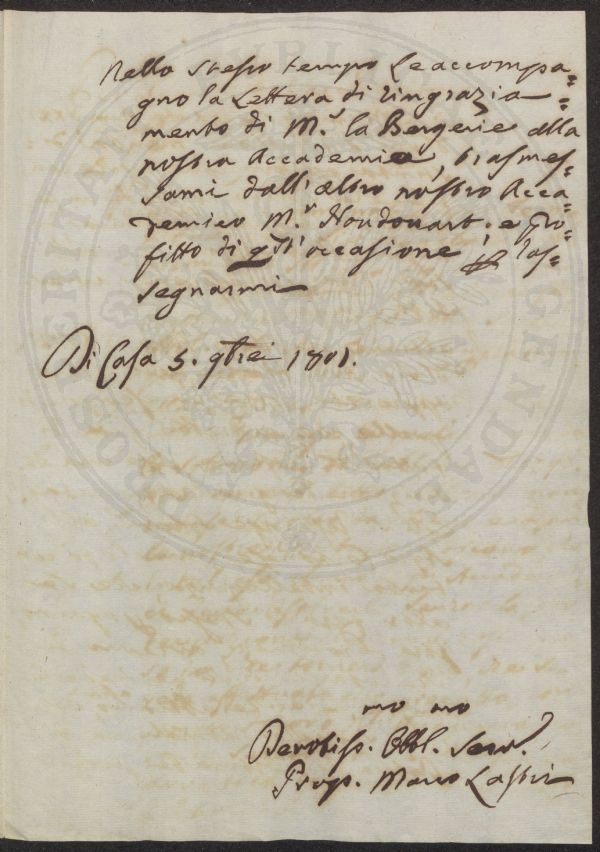 Nello stesso tempo Le accompa=
gno la Lettera di ringrazia=
mento di M.r la Bergerie alla
nostra Accademia, trasmes=
sami dall'altro nostro Acca=
demico M.r Houdouart; e pro=
fitto di qst' occasione, p las=
segnarmi
Di Casa 5. 9brei 1801.
mo mo
Devotiss. Obbl. Serv.e
Prop. Marco Lastri
PROSPERITATI PUBLICAE AUGENDAE